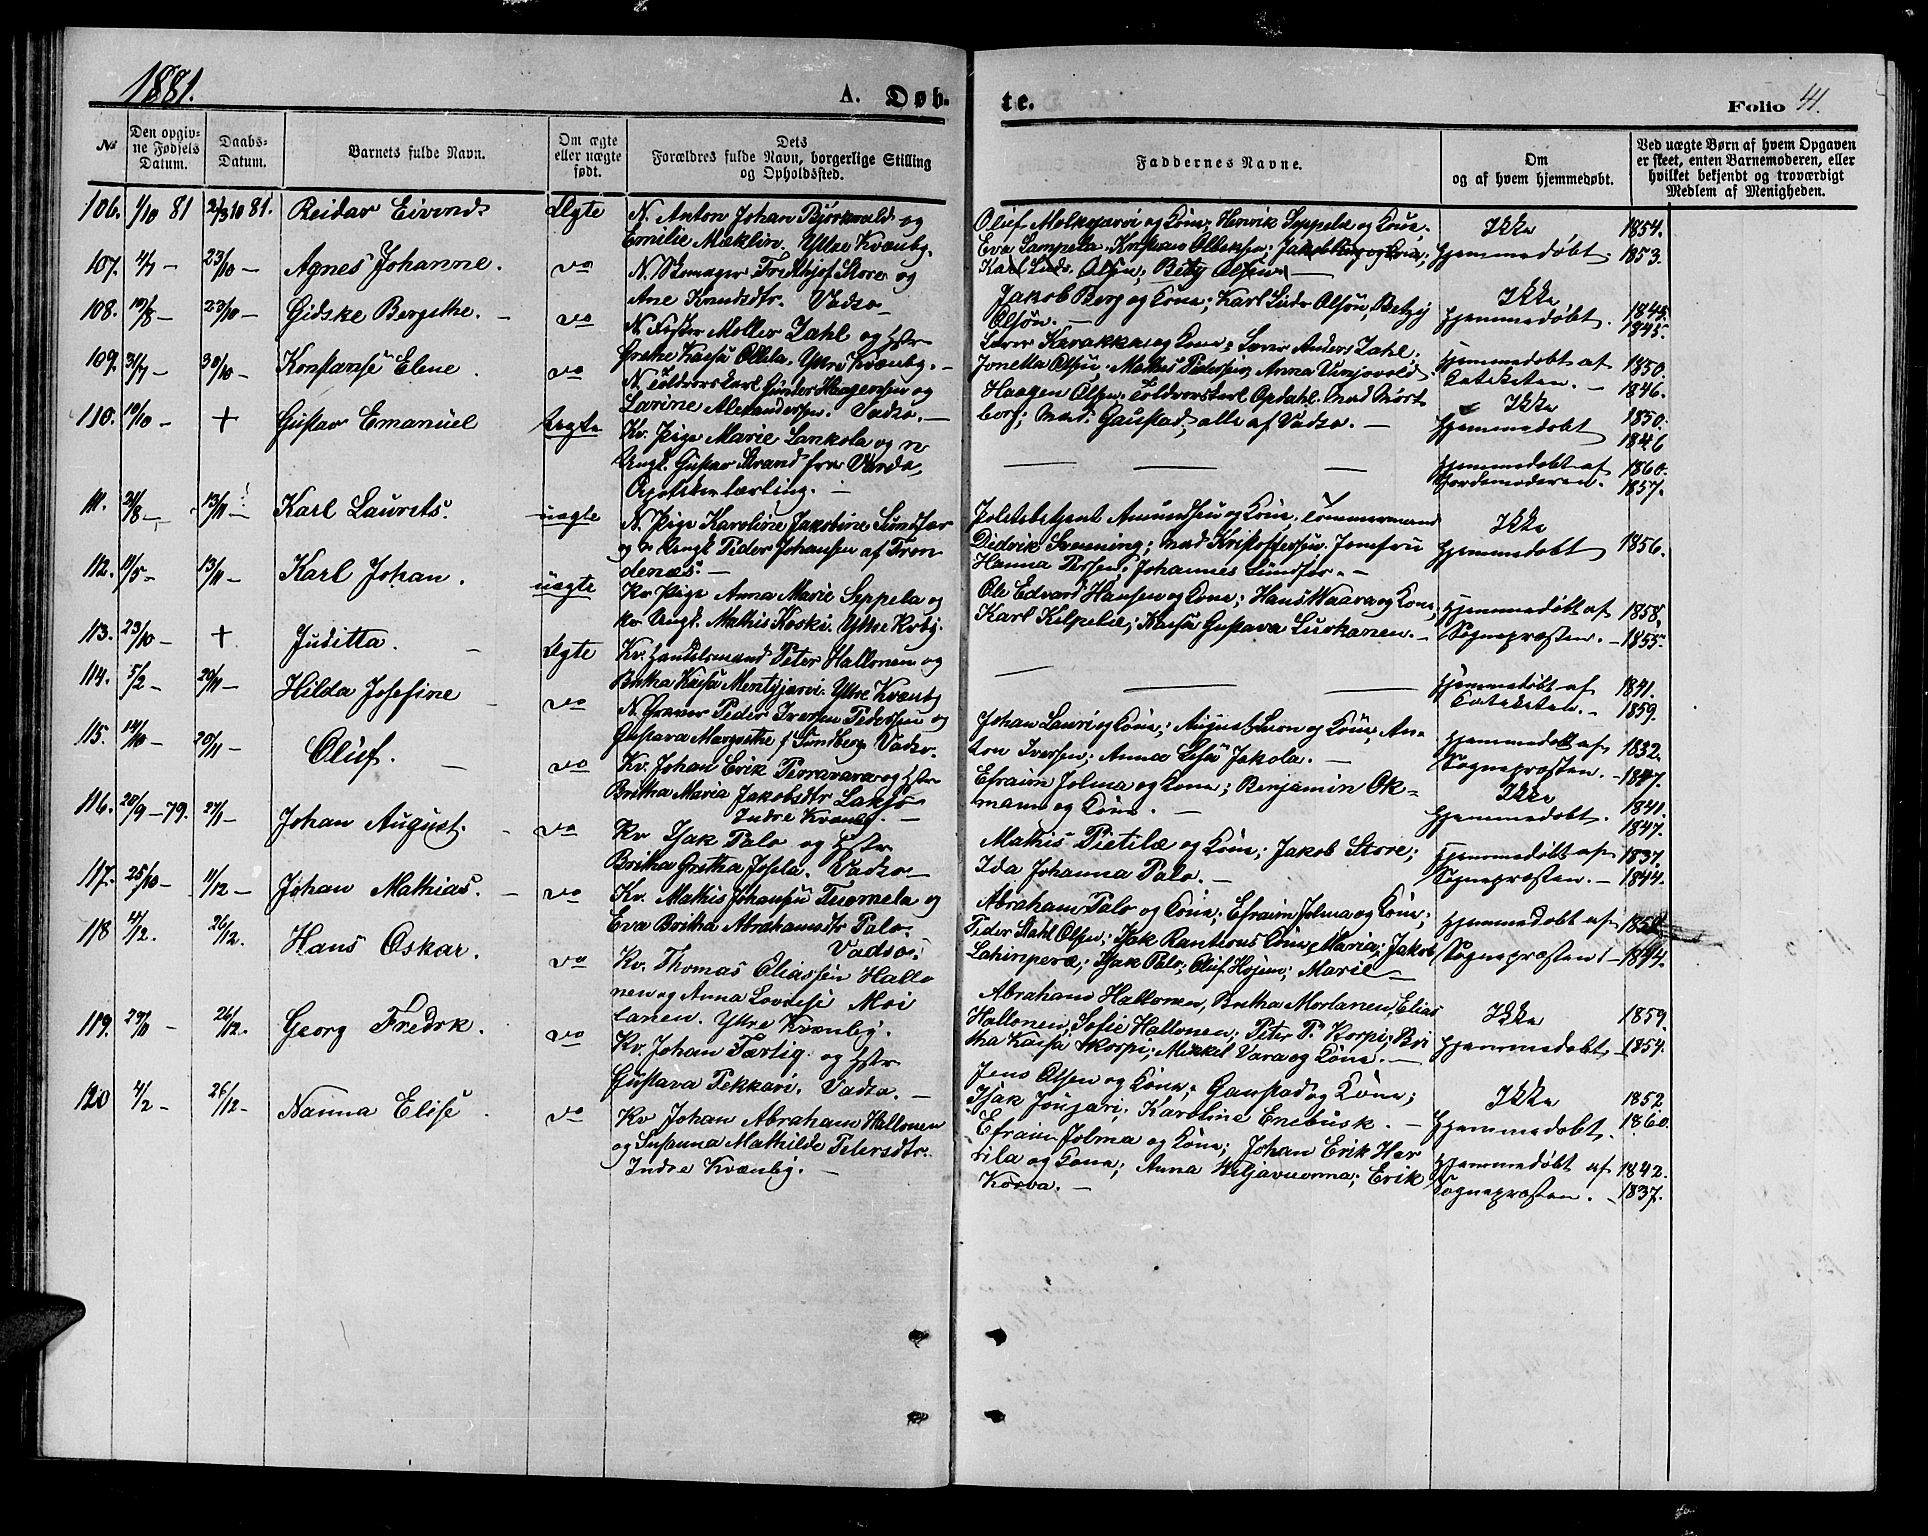 1881.
A. Døb-
te.
Folio 41.
No
Den opgiv-
ne Fødsels
Datum.
Daabs-
Datum.
Barnets fulde Navn.
Om ægte
eller uægte
født.
Dets
Forældres fulde Navn, borgerlige Stilling
og Opholdssted.
Faddernes Navne.
Om
og af hvem hjemmedøbt.
Ved uægte Børn af hvem Opgaven
er skeet, enten Barnemoderen, eller
hvilket bekjendt og troværdigt
Medlem af Menigheden.
106. 1/10 81 23/10 81. Reidar Eivind. Ægte
N. Anton Johan Bjørkvald og
Emilie Mæklin. Yttre Kvænby.
Oluf Molkojarvi og Kone; Henrik Seppela og Kone,
Eva Lampela, Kristian Ollikssen; Jakob Berg og Kone;
Karl Luds. Olsen; Betzy Olsen
Ikke
hjemmedøbt.
1854.
1853.
107. 4/7 — 23/10 — Agnes Johanne. do
N. Skomager Fredthjof Store og
Ane Knudsdtr. Vadsø
Jakob Berg og Kone; Karl Luds Olsen, Betzy
Olsen. —
Ikke
hjemmedøbt.
1845.
1845.
108. 10/8 — 23/10 — Gidske Bergithe. — do
N. Møller Zahl og Hstr
Grethe Kaisa Ollila. Yttre Kvænby. —
Karakka og Kone; Anders Zahl;
Jonetta Olsen; Mathis Pedersen, Anna
hjemmedøbt af
Kateketen. —
1850.
1846.
109. 31/7 — 30/10 — Konstanse Elene. do
N. Toldrorskarl Günder Haagensen og
Larine Alexandersen. Vadsø. —
Haagen Olsen; Toldrorskarl Opdahl. Mad Mort
berg; Mad. Gaustad; alle af Vadsø. —
Ikke
hjemmedøbt
1850.
1846
110. 10/10 — + Gustav Emanuel uægte
Kv. Pige Marie Lankola og n
Ungk. Gustav Strand fra Vardø,
Apothekerlærling. —
— — —
hjemmedøbt af
Jordemoderen.
1860.
1857.
111. 31/8 — 13/11 — Karl Laurits. uægte
N. Pige Karoline Jakobine Sundfær
og n Ungk. Peder Johansen af Tron
denæs. —
Politibetjent Amundsen og Kone; Tømmermand
Didrik Svenning; Mad Kristoffersen. Jomfru
Hanna Persen; Johannes Sundfær. —
Ikke
hjemmedøbt
1856.
112. 11/5 — 13/11 — Karl Johan. uægte
Kv Pige Anna Marie Seppela og
Kv. Ungk. Mathis Koski. Yttre Kvby.
Ole Edvard Hansen og Kone; Hans Waara og Kone,
Karl Kelpelæ; Kaisa Gustava Luskanen. —
hjemmedøbt af
Sognepræsten. —
1858,
1855.
113. 23/10 — + Juditta. — Ægte
Kv. Handelsmand Peter Hallonen og
Britha Kaisa Mentyjarvi. Yttre Kvænby
— — —
hjemmedøbt af
Kateketen. —
1841.
1859.
114. 5/2 — 20/11 — Hilda Josefine — do
N. Graver Peder Iversen Pedersen og
Gustava Margrethe f Sundberg Vadsø.
Johan Lauri og Kone; August Lurn og Kone, An-
ton Iversen; Anna Lisa Jakola. —
hjemmedøbt af
Sognepræsten. —
1832.
1847.
115. 14/10 — 20/11 — Oluf. — do
Kv. Johan Erik Perravara og Hstr
Britha Maria Jakobsdtr Laksø
Indre Kvænby. —
Efraim Jolma og Kone; Benjamin Ok-
mann og Kone. —
Ikke
hjemmedøbt.
1841.
1847.
116. 20/9 — 79. 27/11 — Johan August. — do
Kv Isak Palo og Hstr
Britha Gretha Josela. Vadsø —
Mathis Pietilæ og Kone; Jakob Store;
Ida Johanna Palo. —
hjemmedøbt af
Sognepræsten. —
1837.
1844.
117. 25/10 — 11/12 — Johan Mathias. — do
Kv. Mathis Johansen Tuomela og
Eva Britha Abrahamsdtr Palo.
Vadsø.
Abraham Palo og Kone; Efraim Jolma og Kone;
Peder Dahl Olsen; Isak Rantions Kone Maria; Jakob
Lahinperæ; Isak Palo; Oluf Hojem; Marie —
hjemmedøbt af
Sognepræsten. —
1844.
118 4/12. 26/12. Hans Oskar. do
Kv. Thomas Eliassen Hallo
nen og Anna Lovise Moi
lanen. Yttre Kvænby.
Abraham Hallonen, Britha Morlanen, Elias
Hallonen, Sofie Hallonen; Peter P. Korpi; Bri
tha Kaisa Korpi; Mikkil Vara og Kone. —
Ikke
hjemmedøbt.
1859.
1854.
119. 29/11 — 26/12. Georg Fredrk. do
Kv. Johan Færlig og Hstr
Gustava Pekkari. Vadsø. —
Jens Olsen og Kone; Gaustad og Kone;
Isak Joupari; Karoline Enebusk. —
Ikke
hjemmedøbt.
1852
1860.
120 4/2 — 26/12 — Nanna Elise do
Kv Johan Abraham Hallonen
og Susanna Mathilde Petersdtr.
Indre Kvænby. —
Efraim Jolma og Kone; Johan Erik Her
vila og Kone; Anna Viljavuoma; Erik
Korva. —
hjemmedøbt af
Sognepræsten. —
1842.
1837.